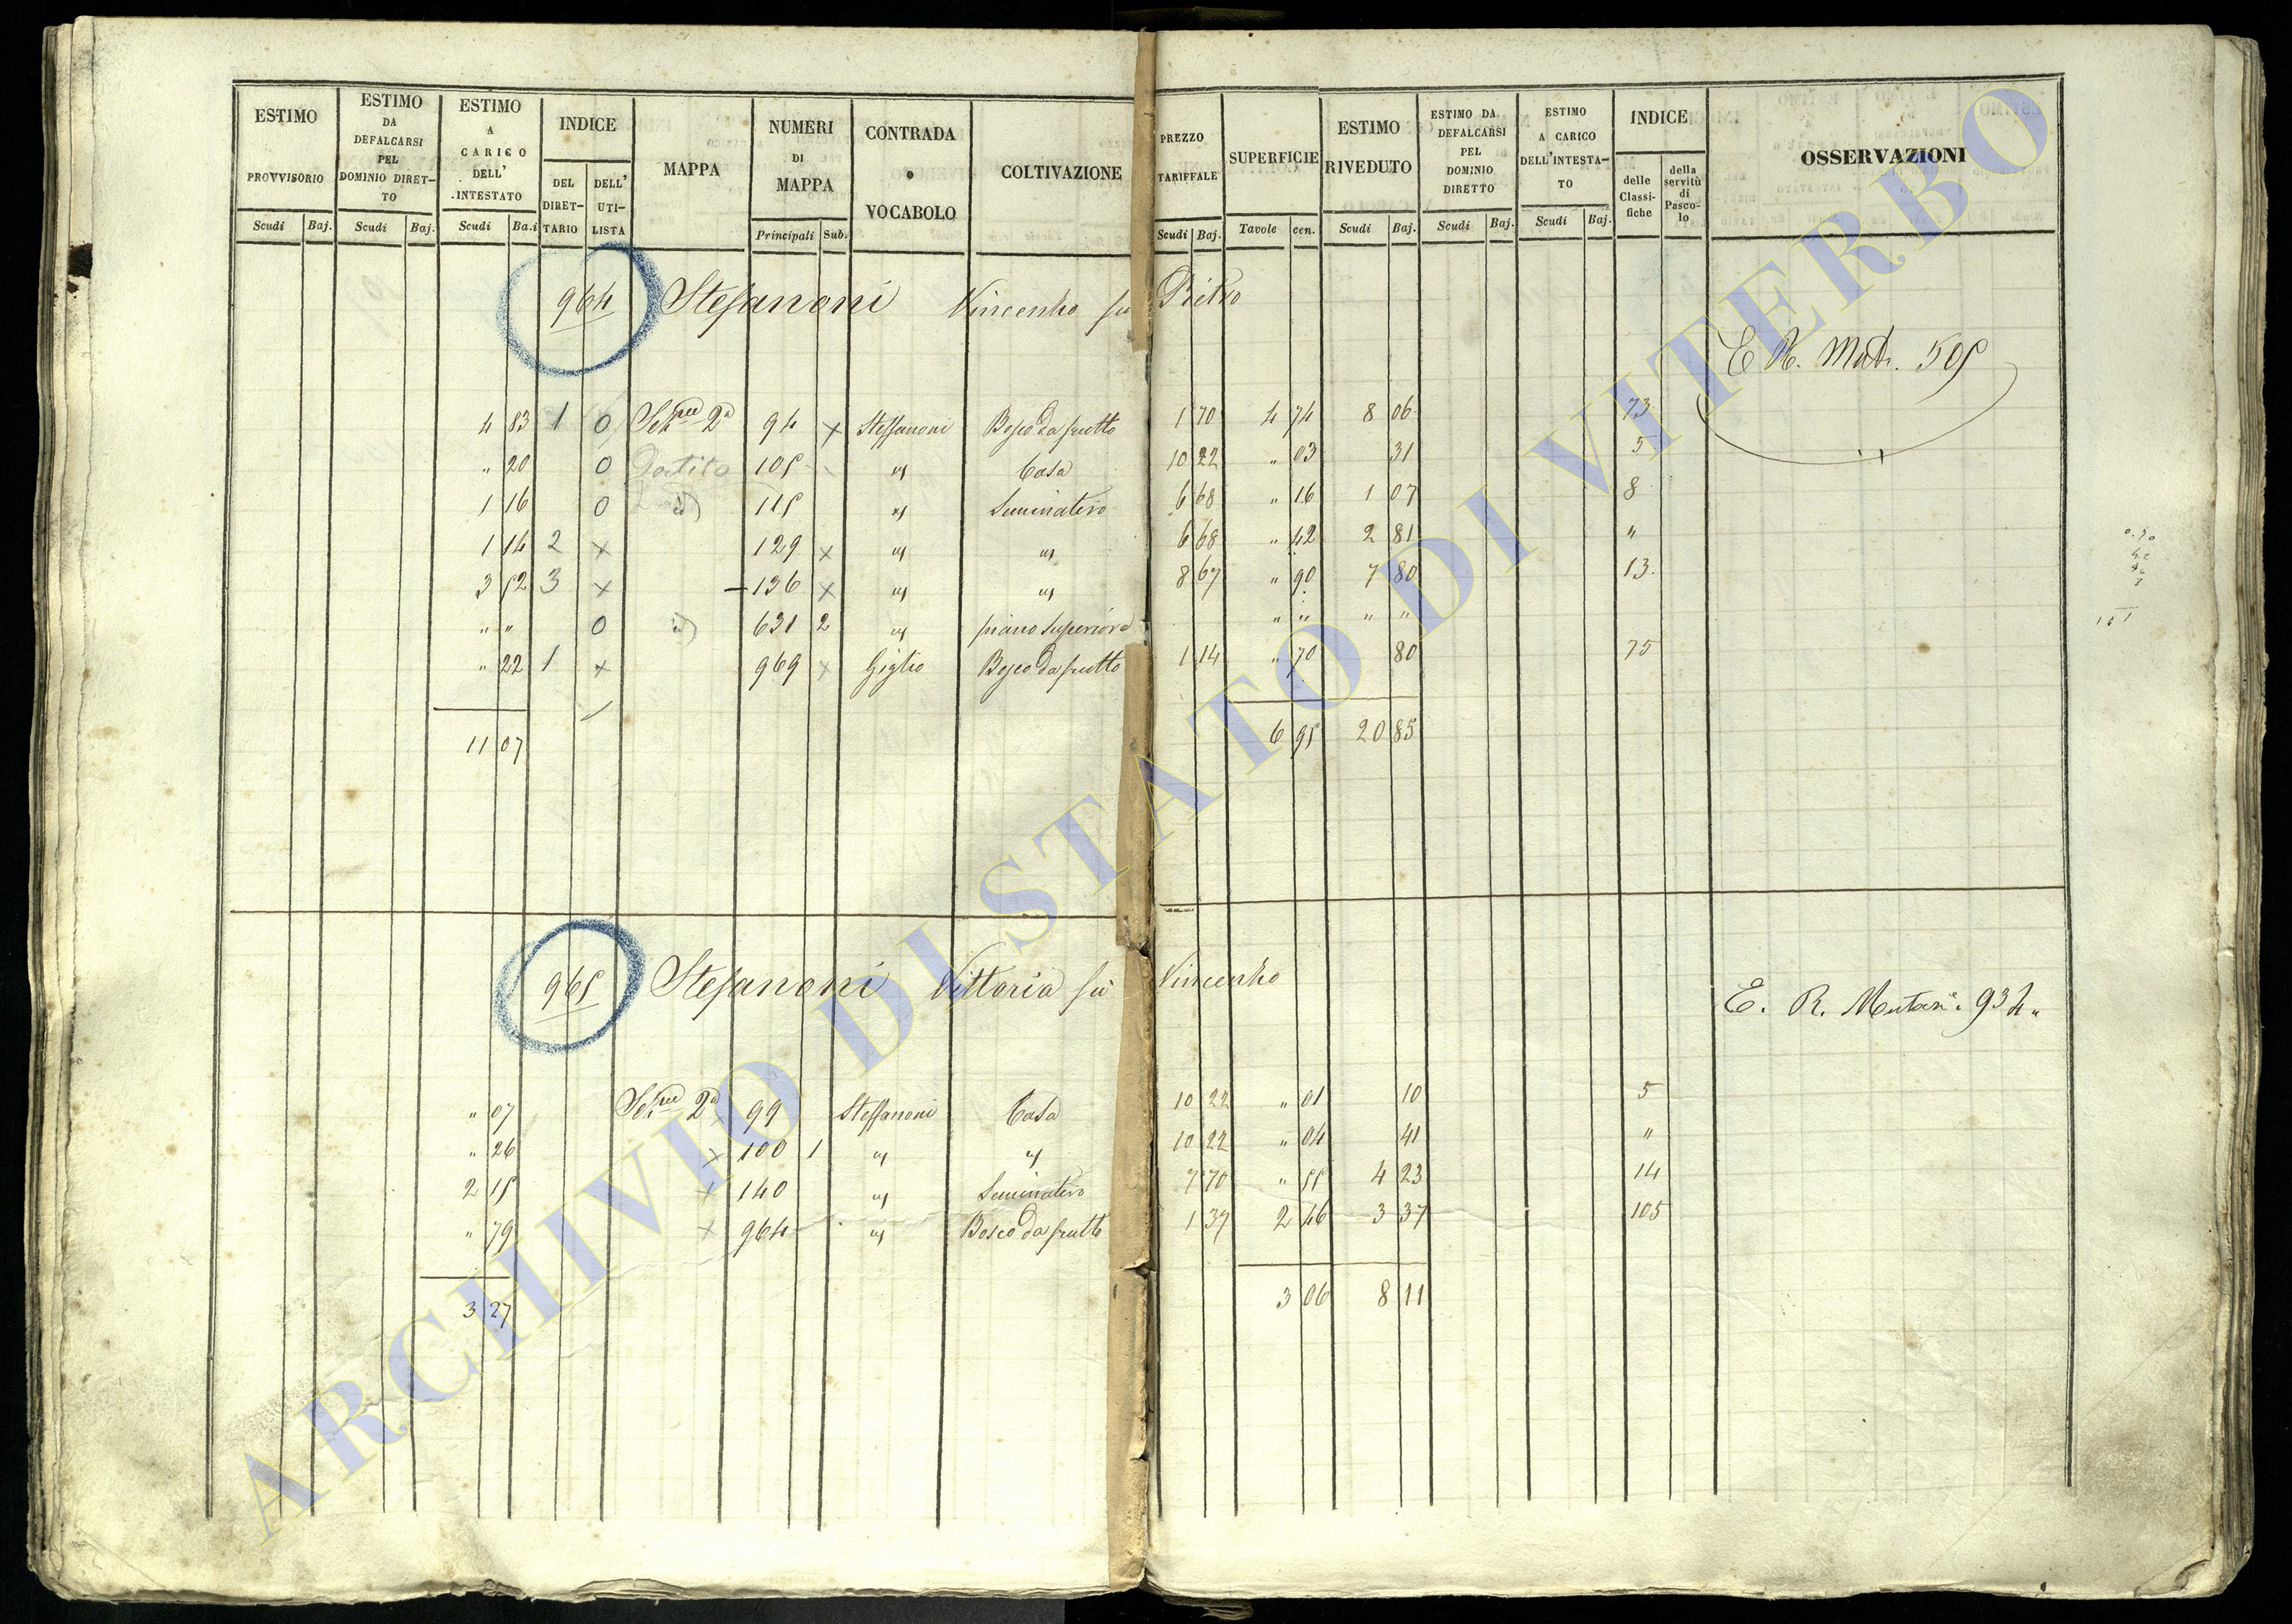 ESTIMO PROVVISORIO Scudi Baj.
ESTIMO DA DEFALCARSI PEL DOMINIO DIRET-TO Scudi Baj.
ESTIMO A CARICO DELL' INTESTATO Scudi Ba.i
INDICE DEL DIRET-TARIO DELL' UTI-LISTA
MAPPA
NUMERI DI MAPPA Principali Sub.
CONTRADA o VOCABOLO
COLTIVAZIONE
PREZZO TARIFFALE Scudi Baj.
SUPERFICIE Tavole cen.
ESTIMO RIVEDUTO Scudi Baj.
ESTIMO DA DEFALCARSI PEL DOMINIO DIRETTO Scudi Baj.
ESTIMO A CARICO DELL'INTESTA-TO Scudi Baj.
INDICE delle Classi-fiche della servitù di Pasco-lo
OSSERVAZIONI
964 Stefanoni Vincenzo fu Pietro
E R. Mut. 505
4 83 1 0 Sez 2a 94 x Steffanoni Bosco da frutto 1 70 4 74 8 06 73
" 20 0 Partita 105 " Casa 10 22 " 03 31 5
1 16 0 id 115 " Seminativo 6 68 " 16 1 07 8
1 14 2 x 129 x " " 6 68 " 42 2 81 "
3 52 3 x 136 x " " 8 67 " 90 7 80 13
" " 0 id 631 2 " piano superiore " " " "
" 22 1 x 969 x Giglio Bosco da frutto 1 14 " 70 80 75
11 07 6 95 20 85
965 Stefanoni Vittoria fu Vincenzo
E. R. Mutazi. 934
" 07 Sez 2a 99 Steffanoni Casa 10 22 " 01 10 5
" 26 x 100 1 " " 10 22 " 04 41 "
2 15 x 140 " Seminativo 7 70 " 55 4 23 14
" 79 x 964 " Bosco da frutto 1 37 2 46 3 37 105
3 27 3 06 8 11
ARCHIVIO DI STATO DI VITERBO